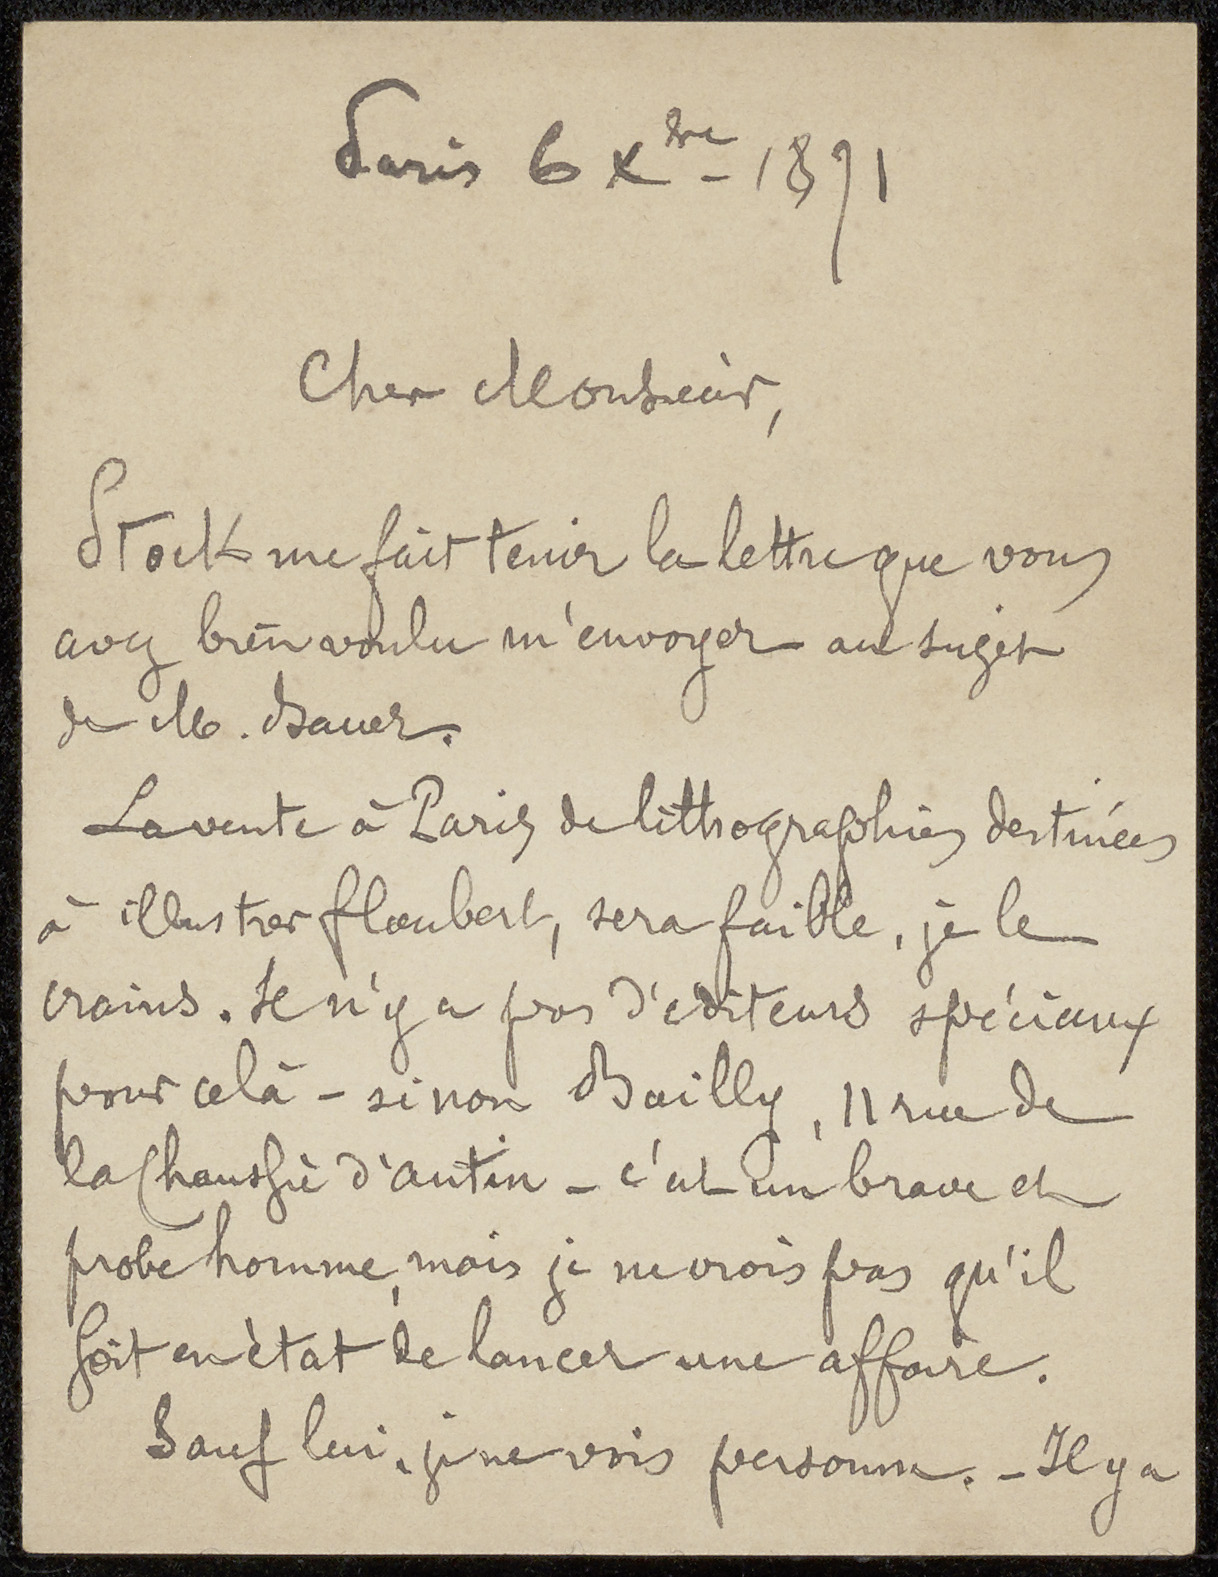 Paris 6 Xbre - 1891
Cher Monsieur,
Stock me fait tenir la lettre que vous
avez bien voulu m'envoyer au sujet
de M. Bauer.
La vente à Paris de lithographies destinées
à illustrer flaubert, sera faible, je le
crains. Il n'y a pas d'editeurs spéciaux
pour celà - sinon Bailly, 11 rue de
la Chaussée d'antin - c'est un brave et
probe homme, mais je ne crois pas qu'il
soit en état de lancer une affaire.
Sauf lui, je ne vois personne. - Il y a